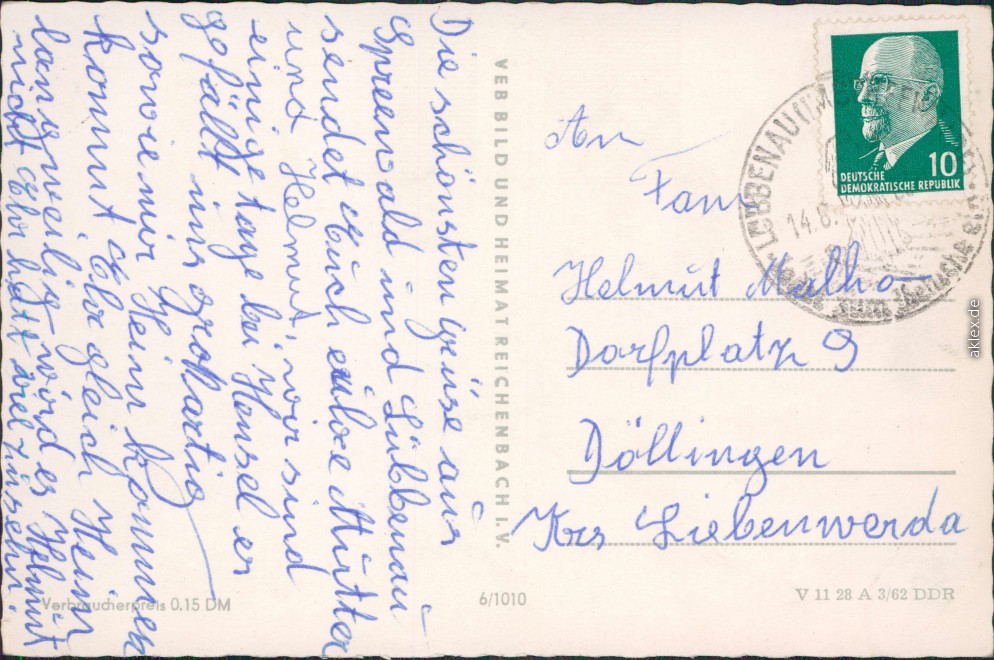 Die schönsten grüse aus
Spreewald und Lübbenau
sendet Euch eure Mutter
und Helmut, wir sind
einige tage bei Hensel er
gefällt uns großartig
sowie wir Heim kommen
kommt Ihr gleich Heim
langweilig wird es Helmut
nicht Ihr habt viel zusehn.
VEB BILD UND HEIMAT REICHENBACH I. V.
Verbraucherpreis 0.15 DM
6/1010
V 11 28 A 3/62 DDR
10
DEUTSCHE
DEMOKRATISCHE REPUBLIK
LÜBBENAU
14.8.
An
Fam
Helmut Malho
Dorfplatz 9
Döllingen
Krs Liebenwerda
aklex.de